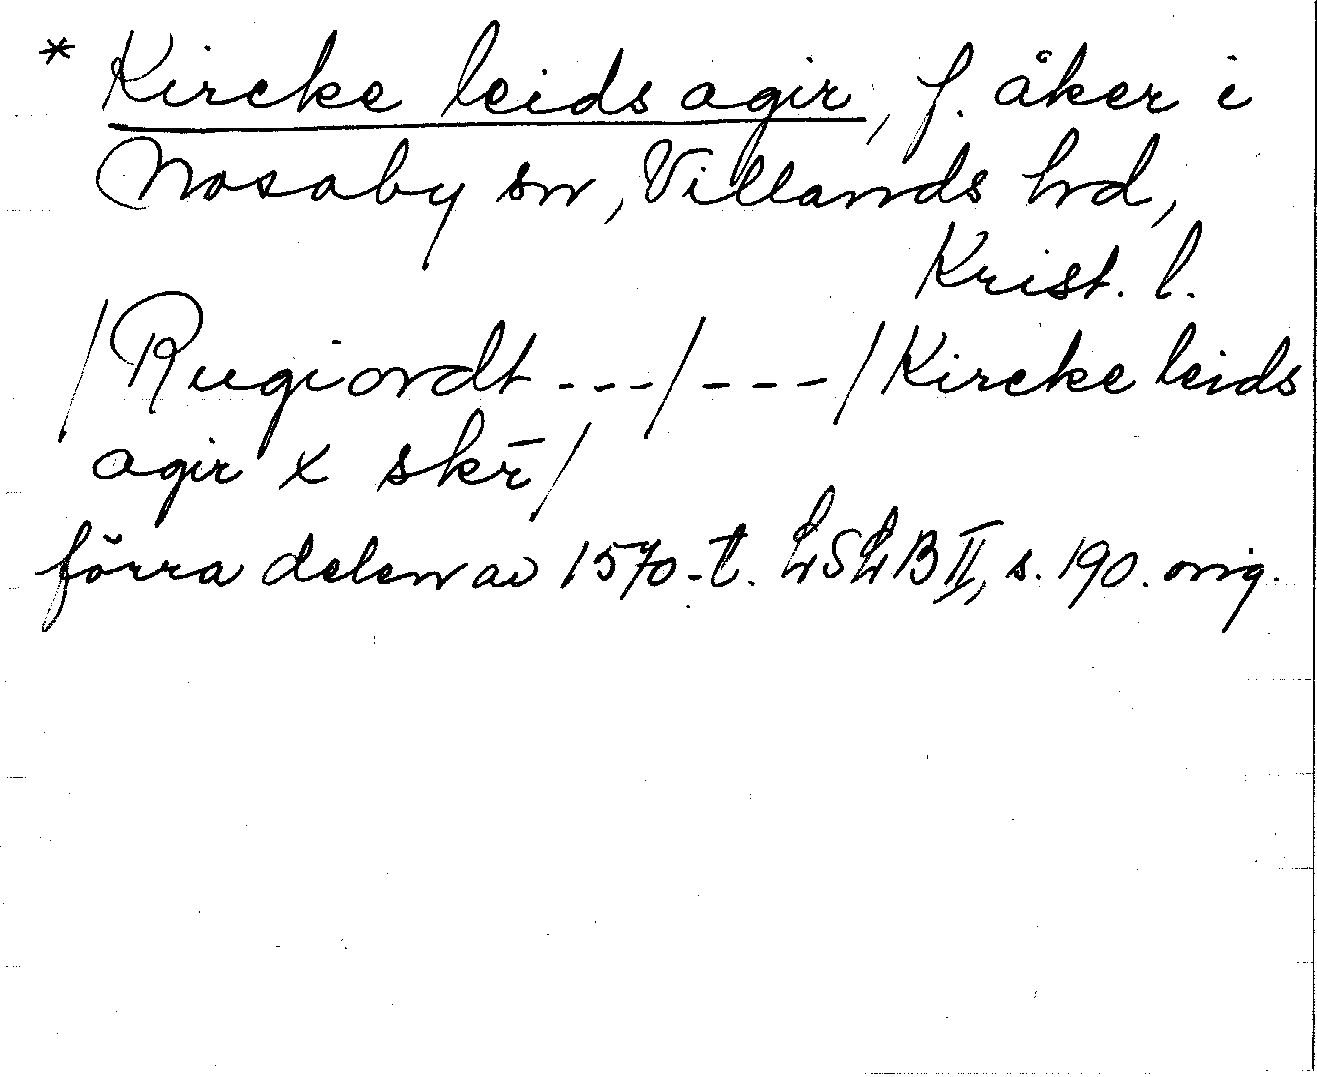 * Kircke leids agir, f. åker i
Nosaby sn, Villands hd,
Krist. l.
/Rugiordt ---/---/Kircke leids
agir x skr̄/
förra delen av 1570-t. LSLB II, s. 190. orig.